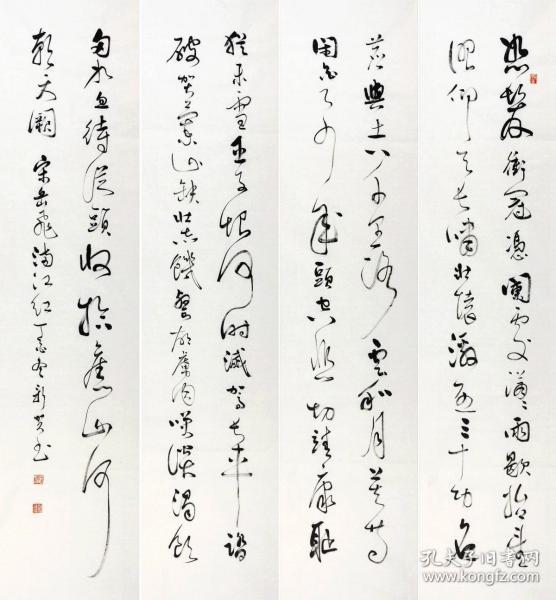 怒髮衝冠憑闌處瀟瀟雨歇抬望
眼仰天長嘯壯懷激烈三十功名
塵與土八千里路雲和月莫等
閒白了少年頭空悲切靖康耻
猶未雪臣子恨何時滅駕長車踏
破賀蘭山缺壯志饑餐胡虜肉笑談渴飲
匈奴血待從頭收拾舊山河
朝天闕 宋岳飛滿江紅 丁亥冬新书
孔夫子旧书网
kongfz.com